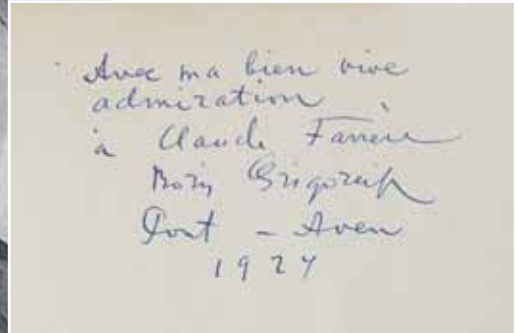 Avec ma bien vive
admiration
à Claude Farrère
Boris Grigorieff
Pont - Aven
1924